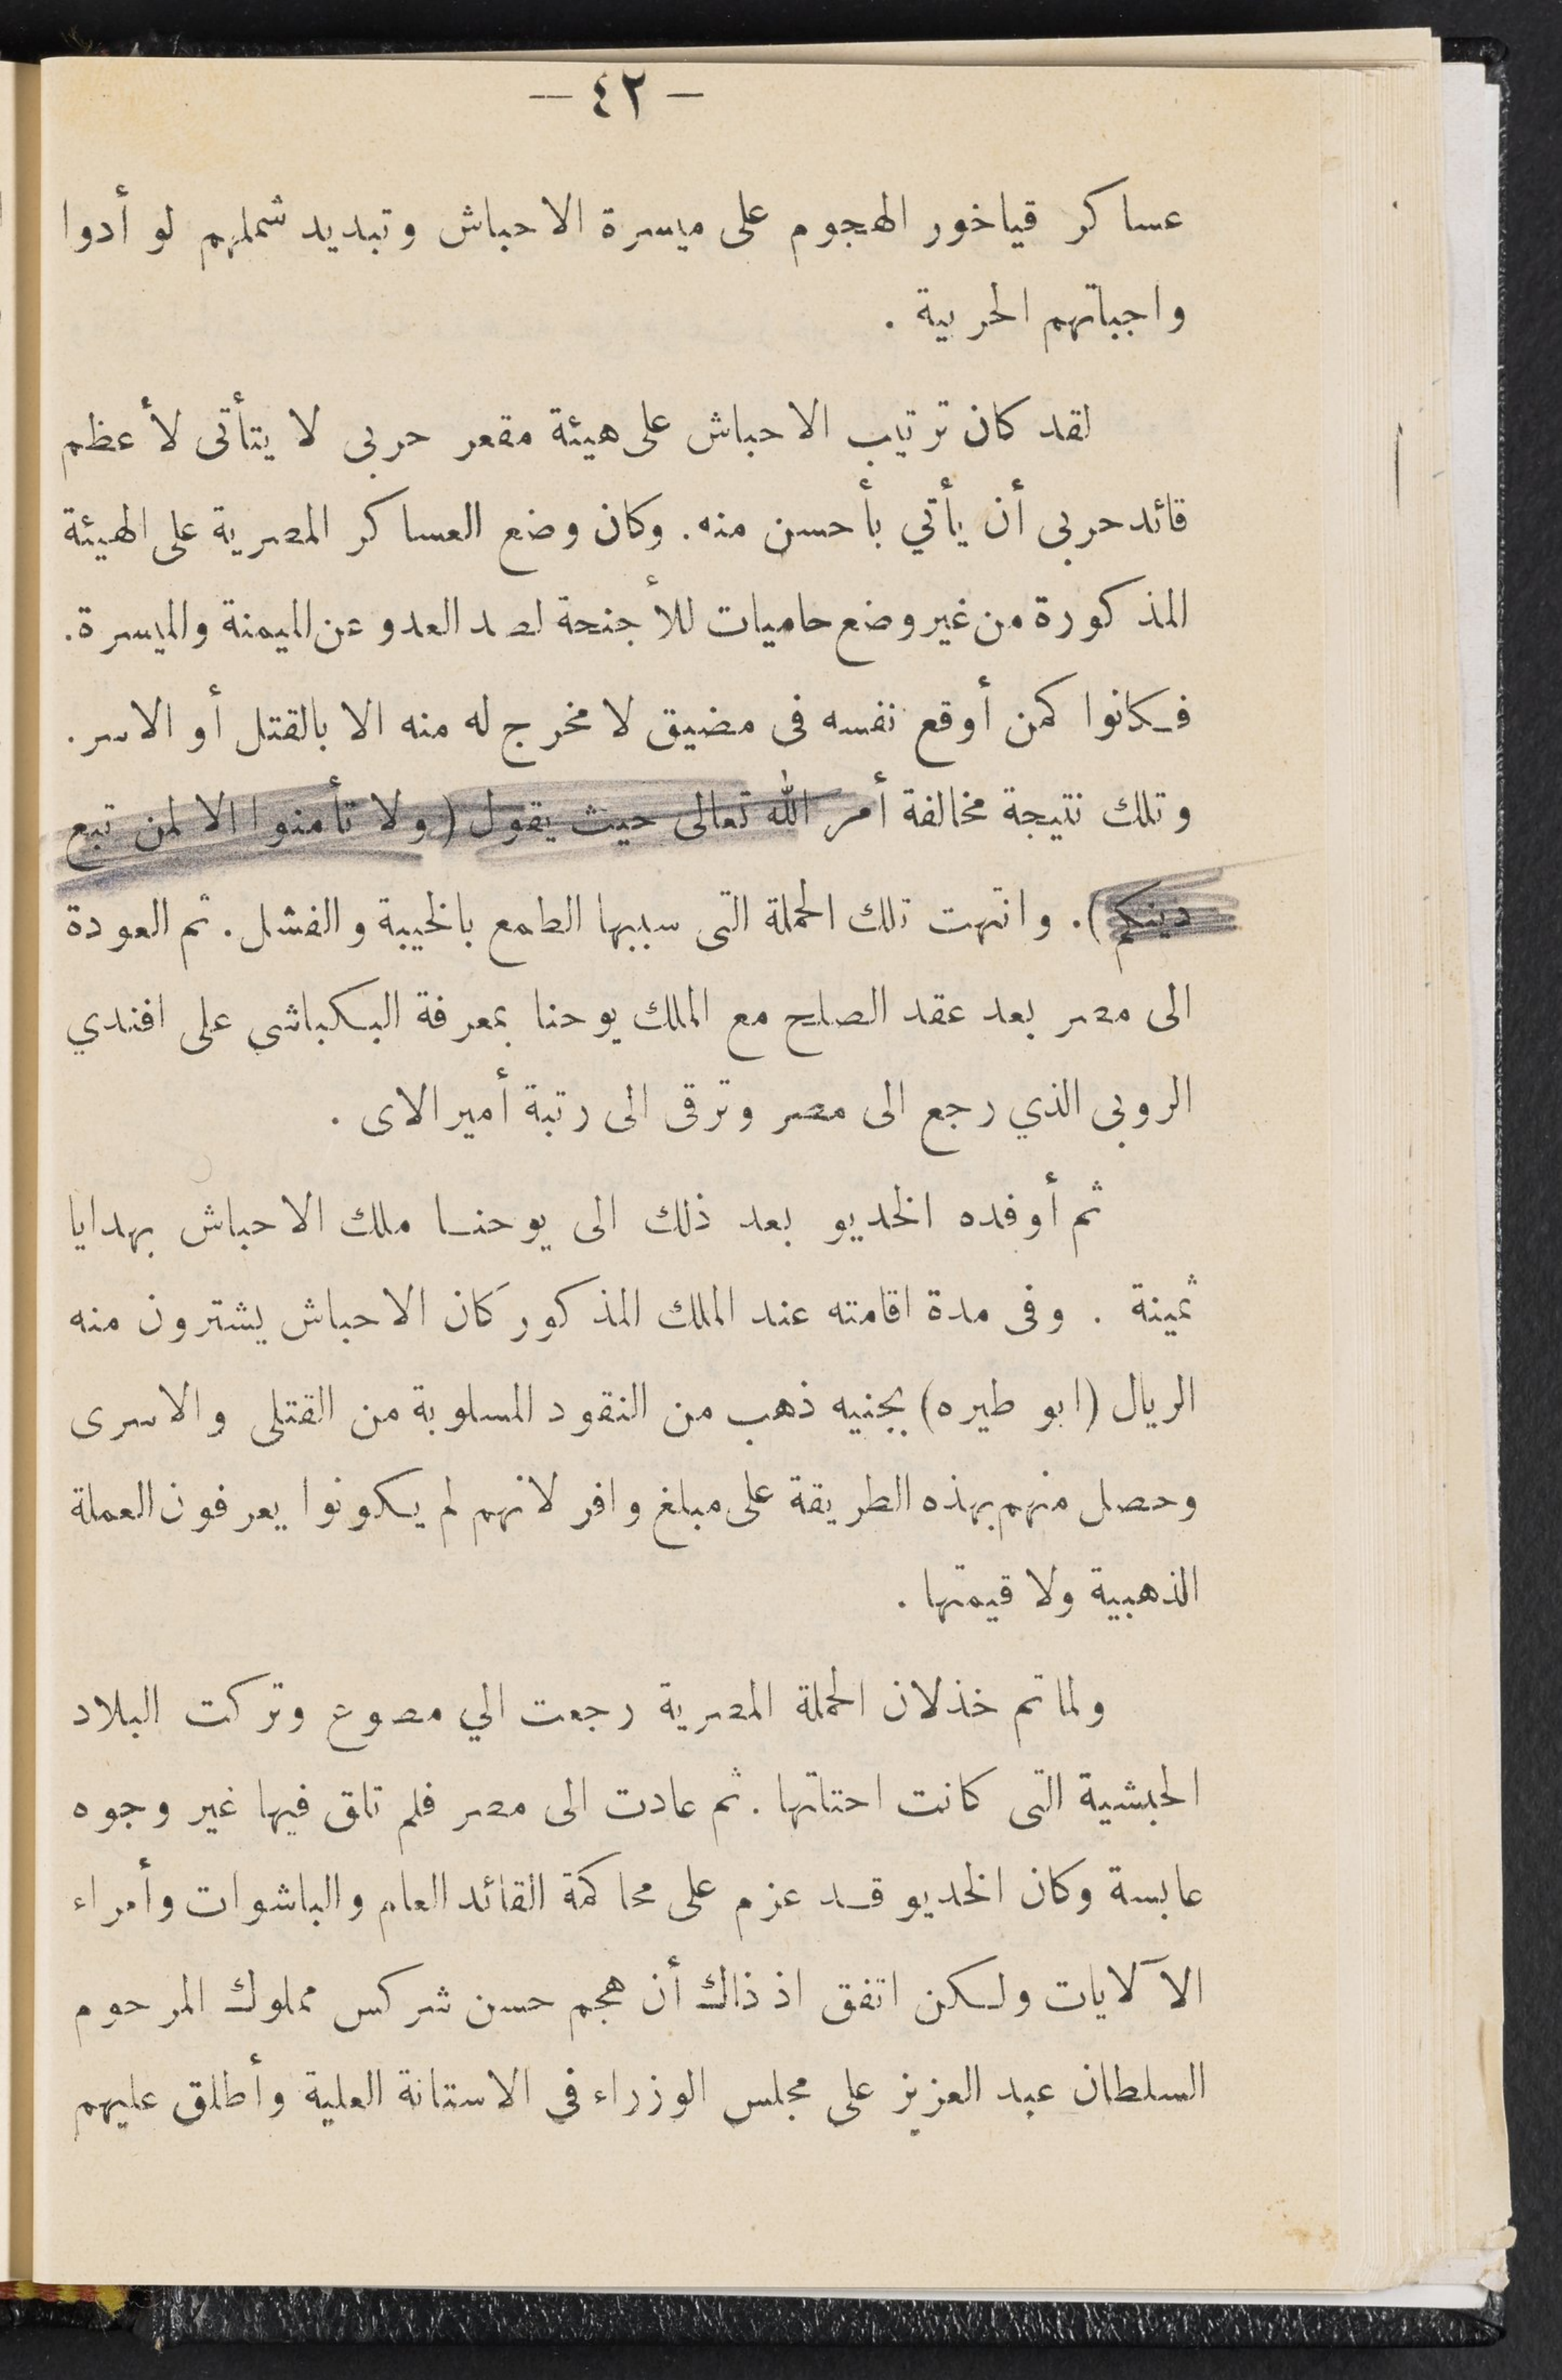 — ٤٢ —
عساكر قياخور الهجوم على ميسرة الاحباش وتبديد شملهم لو أدوا
واجباتهم الحربية .
لقد كان ترتيب الاحباش على هيئة مقعر حربى لا يتأتى لأعظم
قائد حربى أن يأتي بأحسن منه . وكان وضع العساكر المصرية على الهيئة
المذكورة من غير وضع حاميات للأجنحة لصد العدو عن الميمنة والميسرة .
فكانوا كمن أوقع نفسه فى مضيق لا مخرج له منه الا بالقتل أو الاسر .
وتلك نتيجة مخالفة أمر الله تعالى حيث يقول (ولا تأمنوا الا لمن تبع
دينكم) . وانتهت تلك الحملة التى سببها الطمع بالخيبة والفشل . ثم العودة
الى مصر بعد عقد الصلح مع الملك يوحنا بمعرفة البكباشى على افندي
الروبى الذي رجع الى مصر وترقى الى رتبة أمير الاى .
ثم أوفده الخديو بعد ذلك الى يوحنا ملك الاحباش بهدايا
ثمينة . وفى مدة اقامته عند الملك المذكور كان الاحباش يشترون منه
الريال (ابو طيره) بجنيه ذهب من النقود المسلوبة من القتلى والاسرى
وحصل منهم بهذه الطريقة على مبلغ وافر لانهم لم يكونوا يعرفون العملة
الذهبية ولا قيمتها .
ولما تم خذلان الحملة المصرية رجعت الي مصوع وتركت البلاد
الحبشية التى كانت احتلتها . ثم عادت الى مصر فلم تلق فيها غير وجوه
عابسة وكان الخديو قد عزم على محاكمة القائد العام والباشوات وأمراء
الآلايات ولكن اتفق اذ ذاك أن هجم حسن شركس مملوك المرحوم
السلطان عبد العزيز على مجلس الوزراء فى الاستانة العلية وأطلق عليهم